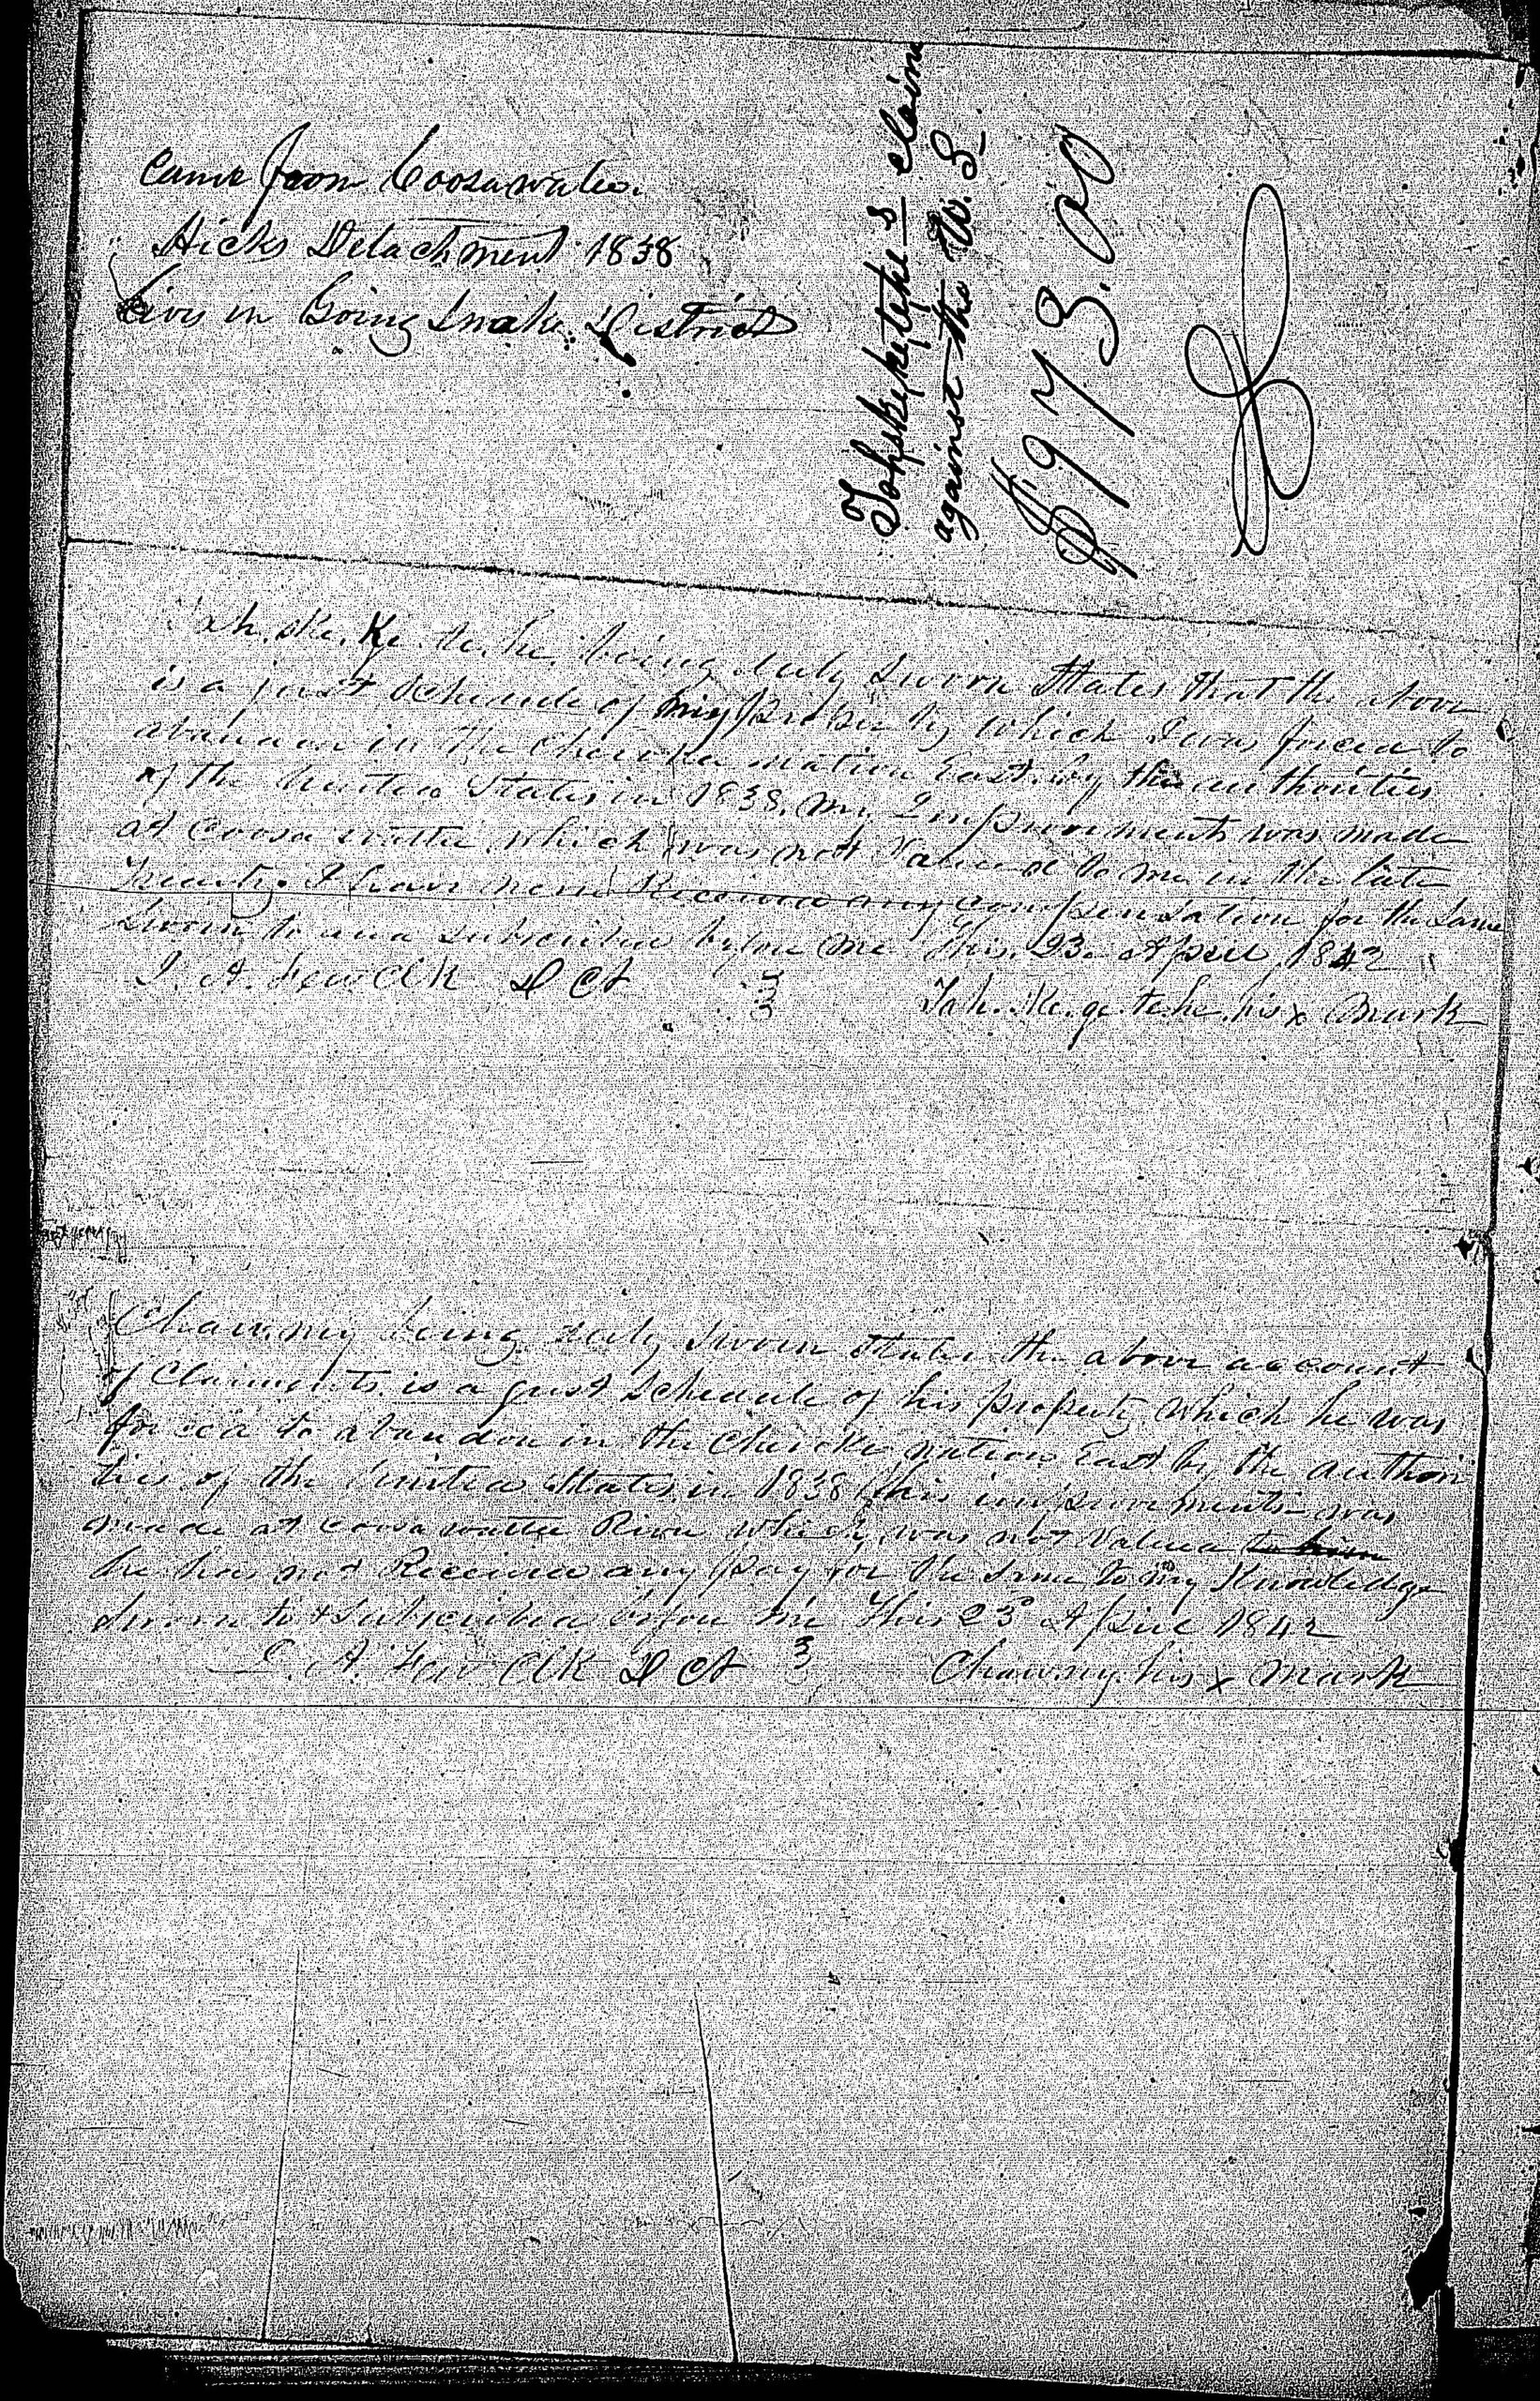 Came from Coosawatee
Hicks Detachment 1838
Livs in Going Snake District
Tahskeketehe's claim
against the U. S.
$973.00
Tah. ske. Ke. te. he. being duly Sworn States that the above
is a just Schedule of my property which I was forced to
abandon in the Cherokee nation East by the authorities
of the United States in 1838. my Improvements was made
at Coosa wattee which was not Valued to me in the late
treaty. I have never Received any compensation for the Same
Sworn to and subscribed before me this 23. April 1842
Clk D Ct Tah. ske. ge. tehe. his x Mark
Chaw.ny being duly sworn States the above account
of Claiments is a just Schedule of his property which he was
forced to abandon in the Cherokee nation East by the authori
ties of the United States in 1838 his improvements was
made at coosa wattee River which was not Valued to him
he has not Received any pay for the Same to my Knowledge
Sworn to & subscribed before me this 23d April 1842
Clk D Ct Chaw.ny. his x Mark